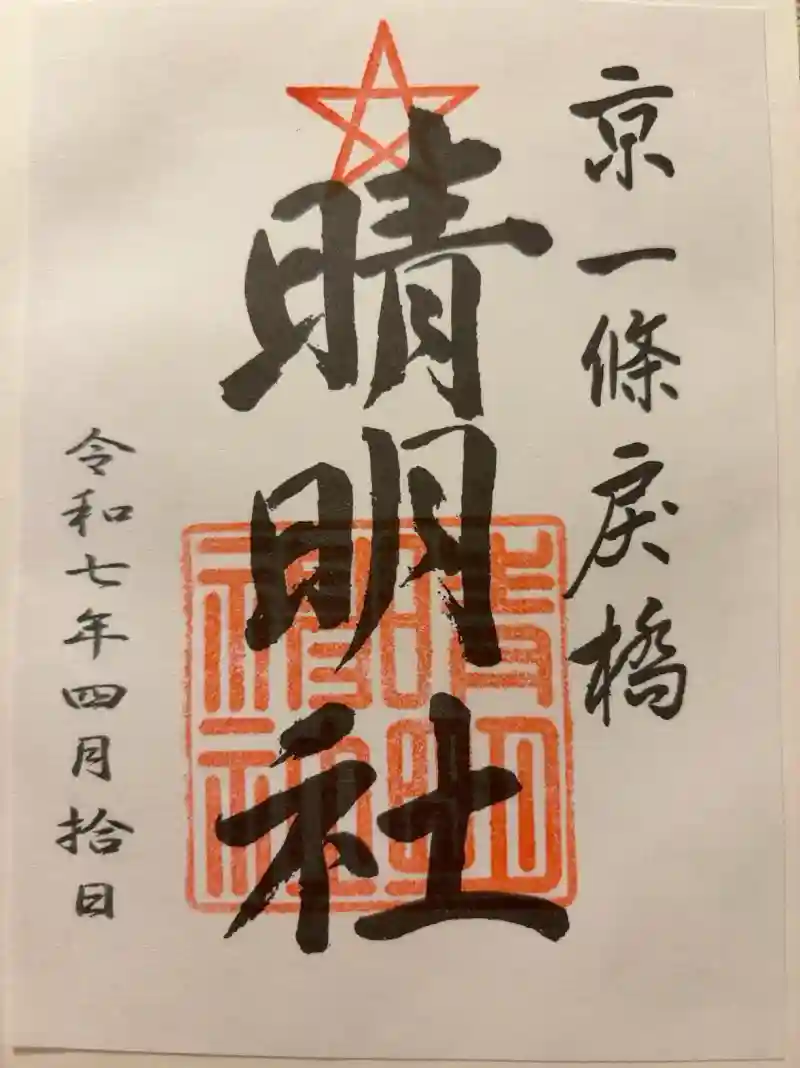 京一條戻橋
晴明社
令和七年四月拾日